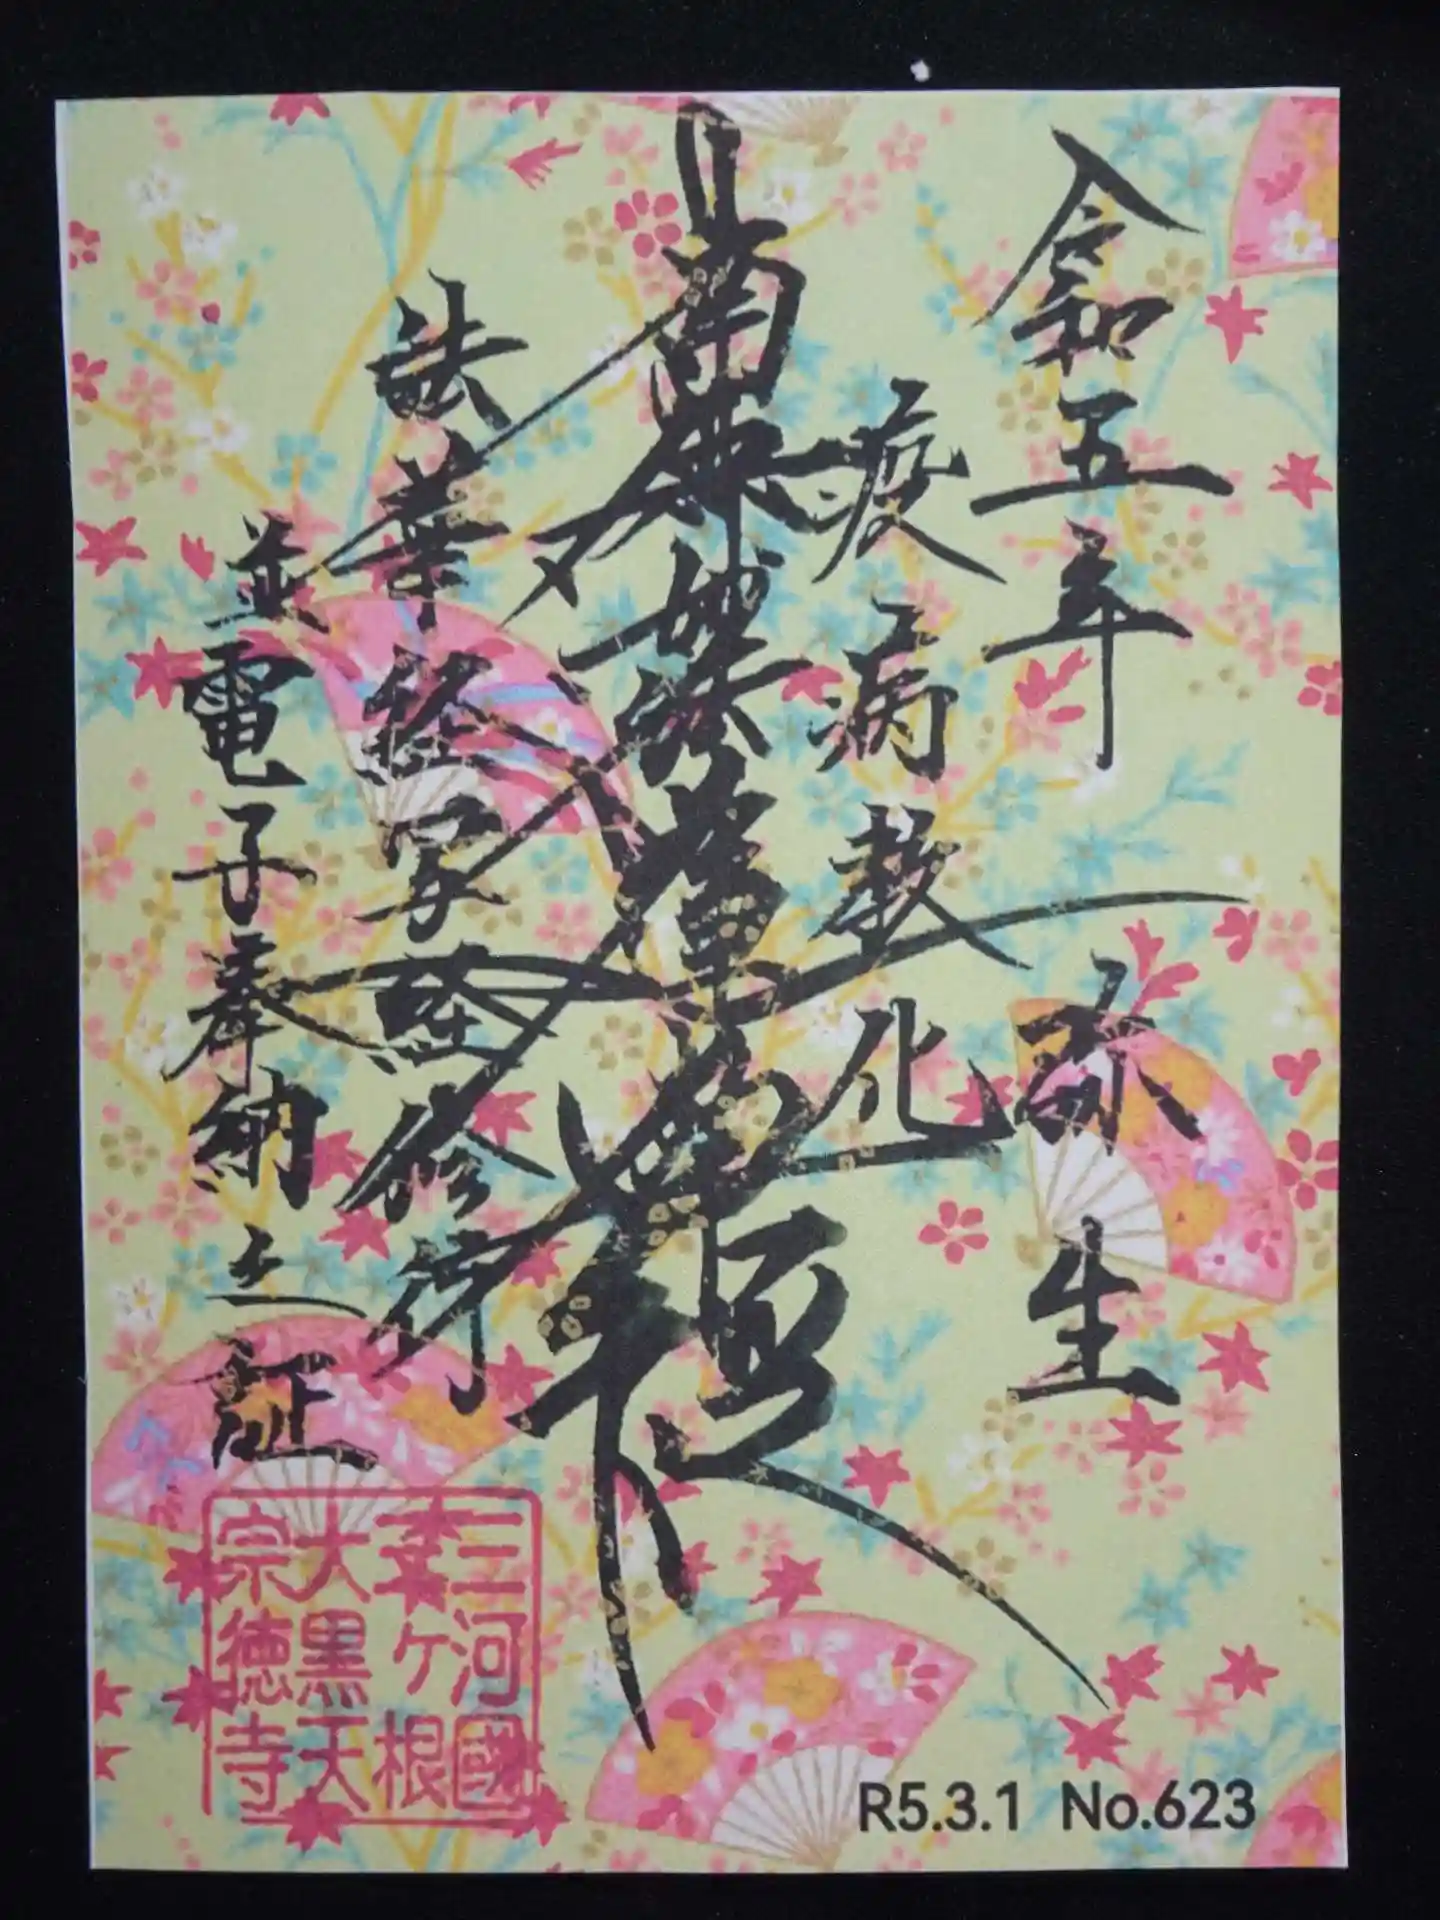 令和五年 弥生
疫病教化
南無妙法蓮華経
法華経写経修行
並電子奉納之証
三河國
幸ヶ根
大黒天
宗徳寺
R5.3.1 No.623